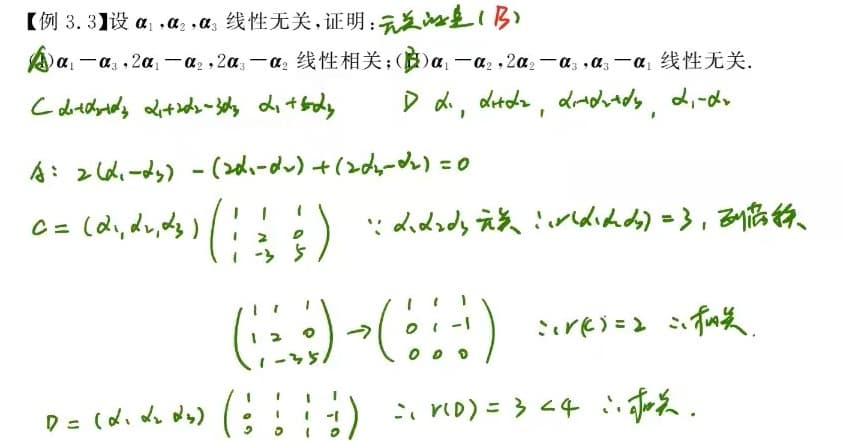 【例 3.3】设 α₁,α₂,α₃ 线性无关,证明: 无关的是(B)
A)α₁-α₃,2α₁-α₂,2α₃-α₂ 线性相关;(B)α₁-α₂,2α₂-α₃,α₃-α₁ 线性无关.
C α₁+α₂+α₃ α₁+2α₂-3α₃ α₁+5α₃ D α₁, α₁+α₂, α₁+α₂+α₃, α₁-α₂
A: 2(α₁-α₃) -(2α₁-α₂)+(2α₃-α₂)=0
C=(α₁,α₂,α₃) ( 1 1 1 ∵ α₁α₂α₃ 无关 ∴r(α₁α₂α₃)=3, 列满秩、
1 2 0
1 -3 5 )
( 1 1 1 → ( 1 1 1 ∴r(C)=2 ∴相关.
1 2 0 0 1 -1
1 -3 5 ) 0 0 0 )
D=(α₁ α₂ α₃) ( 1 1 1 1 ∴ r(D)=3<4 ∴相关.
0 1 1 -1
0 0 1 0 )